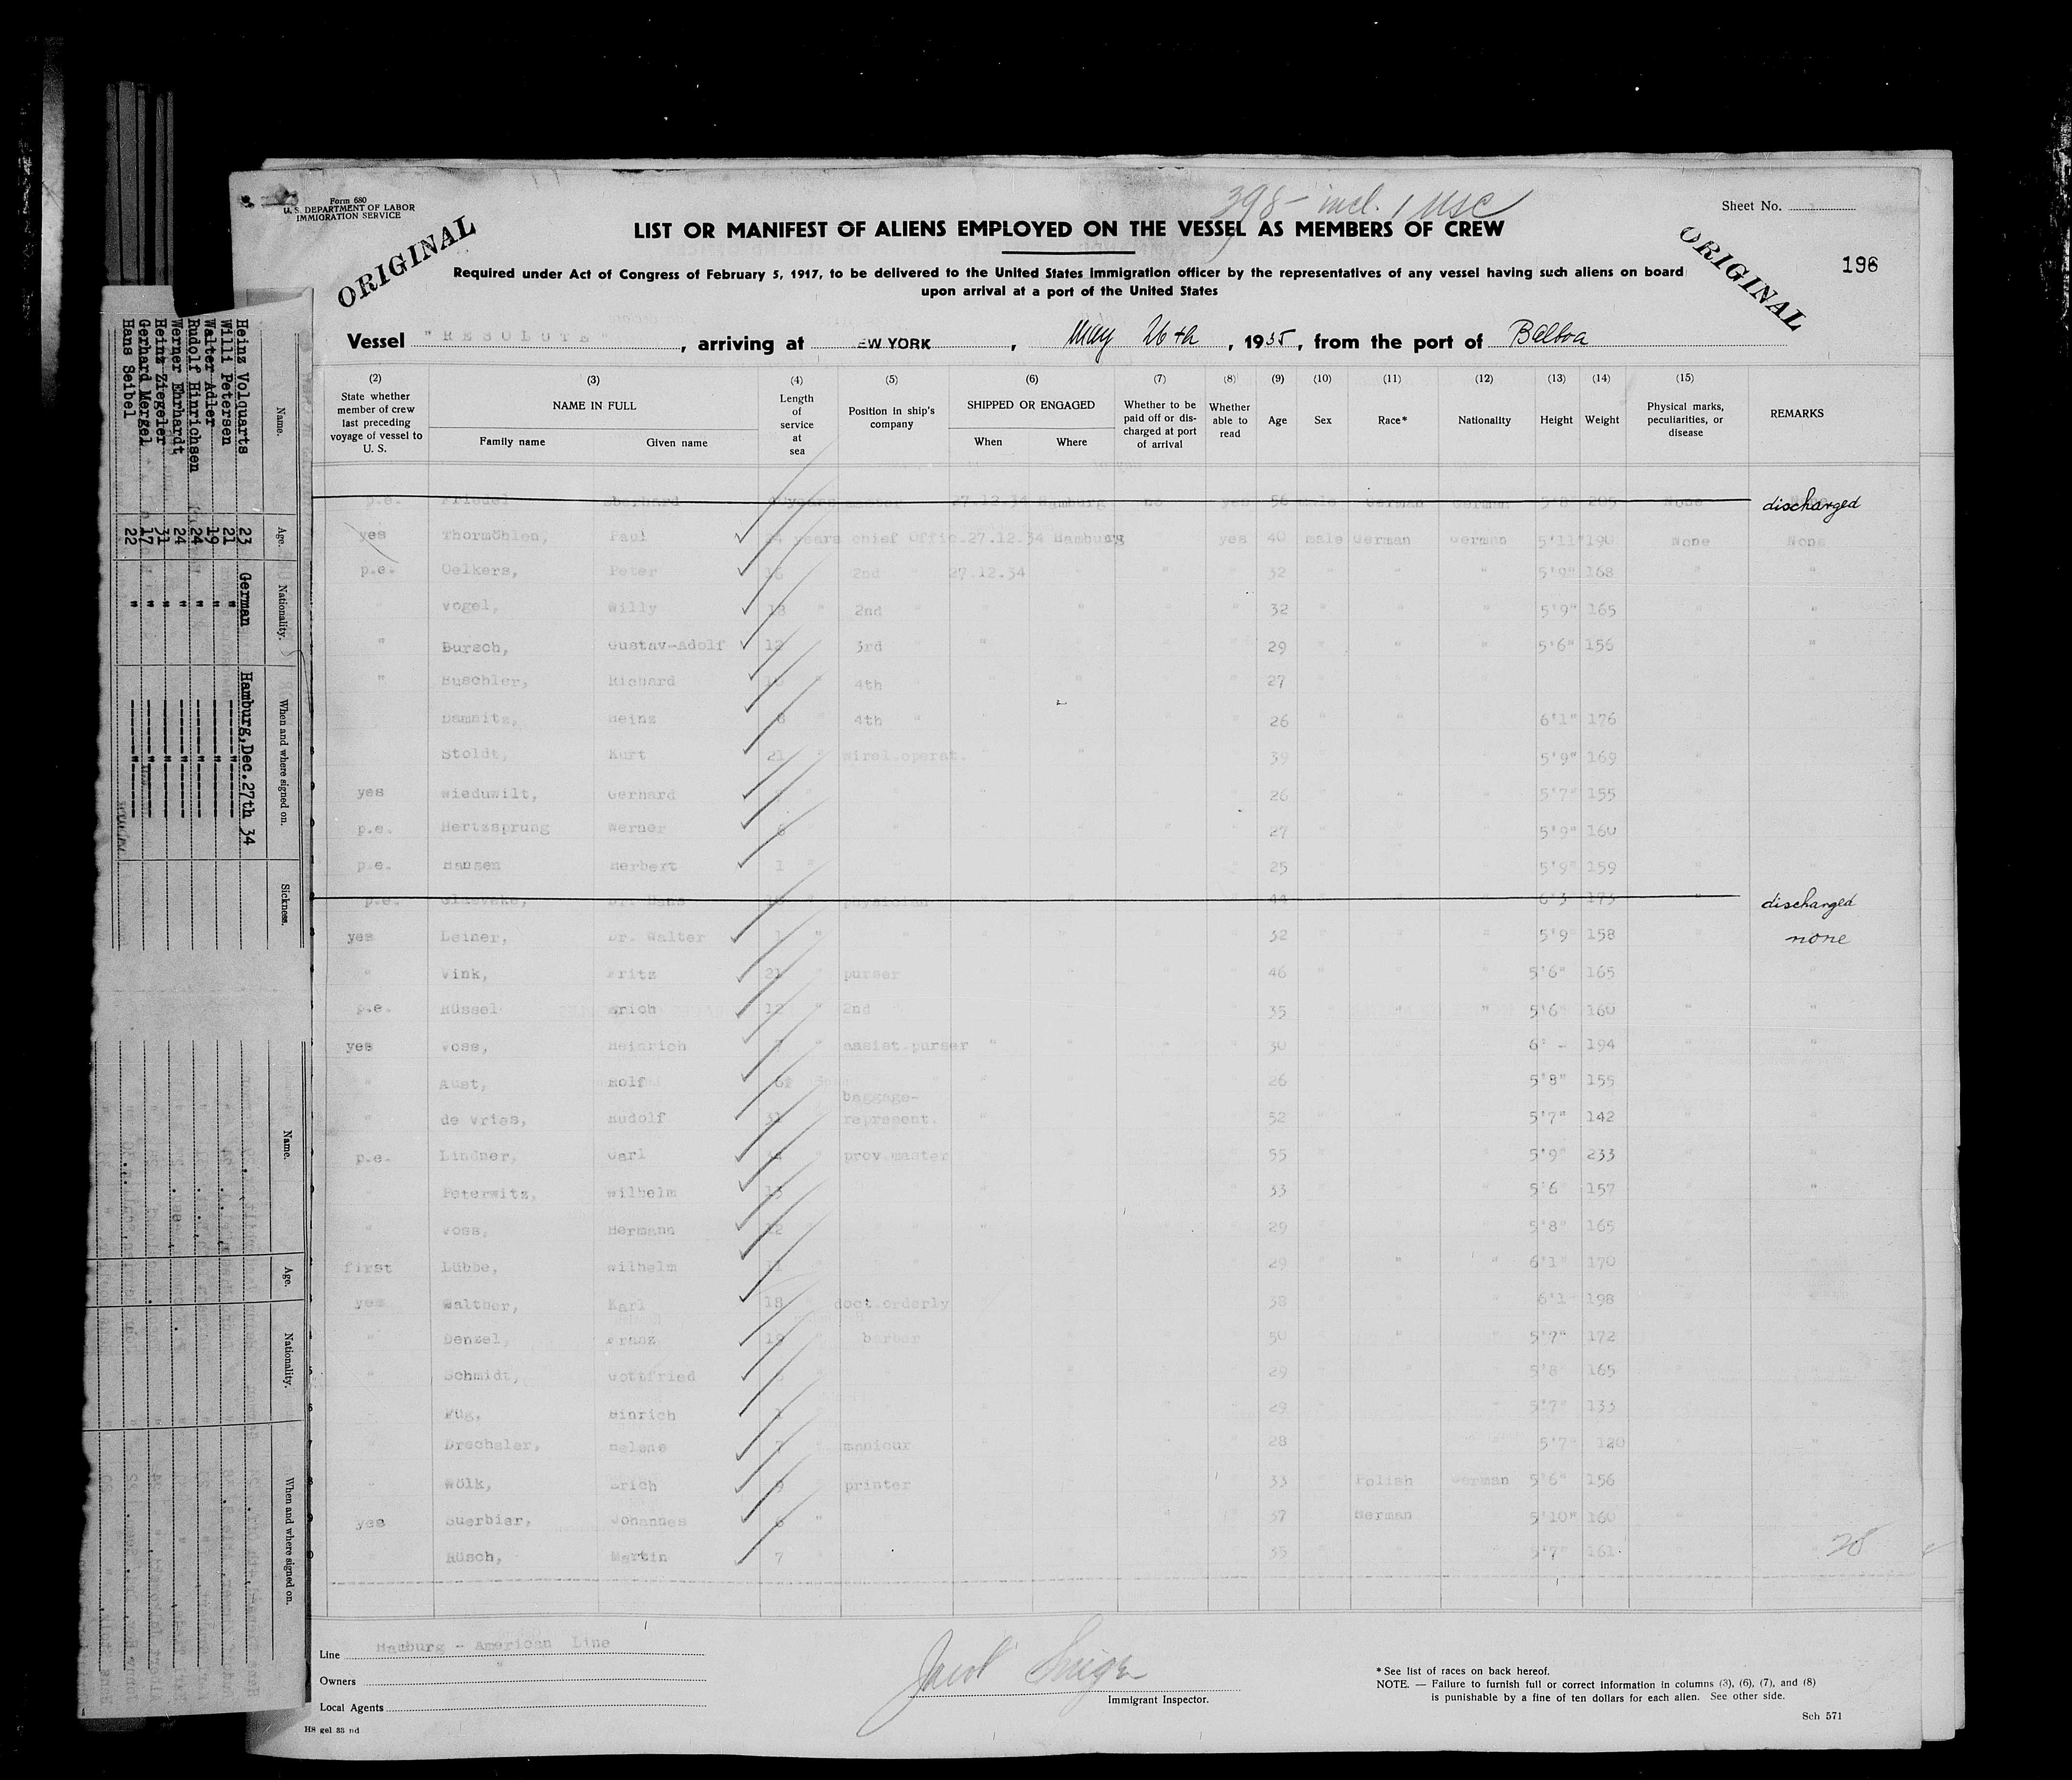 Form 680
U. S. DEPARTMENT OF LABOR
IMMIGRATION SERVICE
ORIGINAL
398 - incl. 1 USC
LIST OR MANIFEST OF ALIENS EMPLOYED ON THE VESSEL AS MEMBERS OF CREW
Sheet No.
ORIGINAL
196
Required under Act of Congress of February 5, 1917, to be delivered to the United States Immigration officer by the representatives of any vessel having such aliens on board
upon arrival at a port of the United States
Vessel "RESOLUTE", arriving at EW YORK, May 26th, 1935, from the port of Balboa
(2) State whether member of crew last preceding voyage of vessel to U. S. (3) NAME IN FULL Family name Given name (4) Length of service at sea (5) Position in ship's company (6) SHIPPED OR ENGAGED When Where (7) Whether to be paid off or discharged at port of arrival (8) Whether able to read (9) Age (10) Sex (11) Race* (12) Nationality (13) Height (14) Weight (15) Physical marks, peculiarities, or disease REMARKS
p.e. Eberhard years master 27.12.34 Hamburg no yes 56 male German German 5'8" 205 None discharged
yes Thormöhlen, Paul 24 years chief Offic. 27.12.34 Hamburg yes 40 male German German 5'11" 190 None None
p.e. Oelkers, Peter 16 2nd 27.12.34 " " 32 " " " 5'9" 168 "
" Vogel, Willy 18 " 2nd " " " " 32 " " " 5'9" 165 "
" Bursch, Gustav-Adolf 12 3rd " " 29 " " " 5'6" 156 "
" Buschler, Richard 10 " 4th " " " 27
Heinz 8 4th " " 26 " " 6'1" 176
Stoldt, Kurt 21 " wirel.operat. " 39 5'9" 169
yes Wieduwilt, Gerhard 26 " 5'7" 155
p.e. Hertzsprung Werner 6 27 5'9" 160
p.e. Hansen Herbert 1 25 5'9" 159
p.e. Dr. Hans physician 44 6'3 173 " discharged
yes Leiner, Dr. Walter 1 " 32 5'9 158 none
" Vink, Fritz 21 purser 46 5'6" 165
p.e. Rüssel Erich 12 " 2nd 35 " " 5'6" 160 " "
yes Voss, Heinrich 7 " assist.purser " 30 6' - 194
" Aust, Rolf 6 26 5'8" 155
" de Vries, Rudolf 31 baggage-represent. 52 " 5'7" 142
p.e. Lindner, Carl prov.master 55 5'9" 233
" Peterwitz, Wilhelm 13 33 5'6 157 "
" Voss, Hermann 12 29 5'8" 165
first Lübbe, Wilhelm 11 29 " " 6'1" 170
yes Walther, Karl 18 doct.orderly 38 6'1 198
" Denzel, Franz 19 barber 50 " 5'7" 172
" Schmidt, Gottfried 29 " 5'8 165
Hinrich 1 29 5'7" 133
" Drechsler, Helene 7 manicur 28 5'7 120
" Wölk, Erich 9 printer 33 Polish German 5'6" 156
yes Suerbier, Johannes 6 " 37 German 5'10" 160
Rüsch, Martin 7 35 5'7" 161
28
Line Hamburg - American Line
Owners "
Local Agents
Immigrant Inspector.
* See list of races on back hereof.
NOTE. — Failure to furnish full or correct information in columns (3), (6), (7), and (8)
is punishable by a fine of ten dollars for each alien. See other side.
HS gel 33 nd
Sch 571
Name. Age. Nationality. When and where signed on. Sickness.
Heinz Volquarts 23 German Hamburg, Dec.27th 34
Willi Petersen 21 " ------"------
Walter Adler 19 " ------"------
Rudolf Hinrichsen 24 " ------"------
Werner Ehrhardt 24 " ------"------
Heinz Ziegeler 31 " ------"------
Gerhard Mergel 17 " ------"------
Hans Seibel 22 " ------"------
Name. Age. Nationality. When and where signed on.